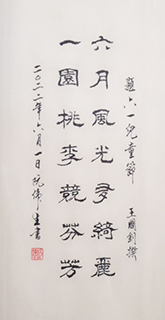 題六一兒童節
王國釗撰
六月風光多綺麗
一園桃李競芬芳
二〇二二年六月一日阮偉生書